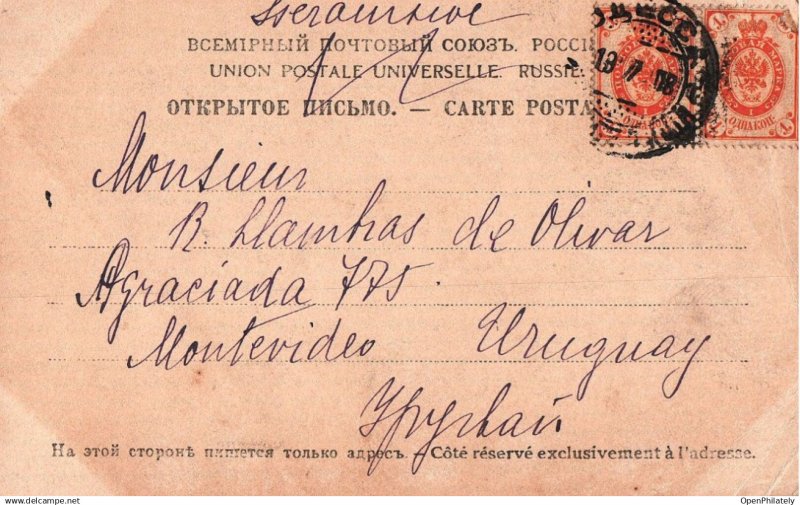 ВСЕМІРНЫЙ ПОЧТОВЫЙ СОЮЗЪ. РОССІ
UNION POSTALE UNIVERSELLE. RUSSIE
ОТКРЫТОЕ ПИСЬМО. — CARTE POSTA
19 7 08
ОДНА КОП.
1
МАРКА
ОДНА КОП.
Monsieur
R. Llambias de Olivar
Agraciada 775.
Montevideo Uruguay
Уругвай
На этой сторонѣ пишется только адресъ. — Côté réservé exclusivement à l'adresse.
www.HipStamp.com
OpenPhilately